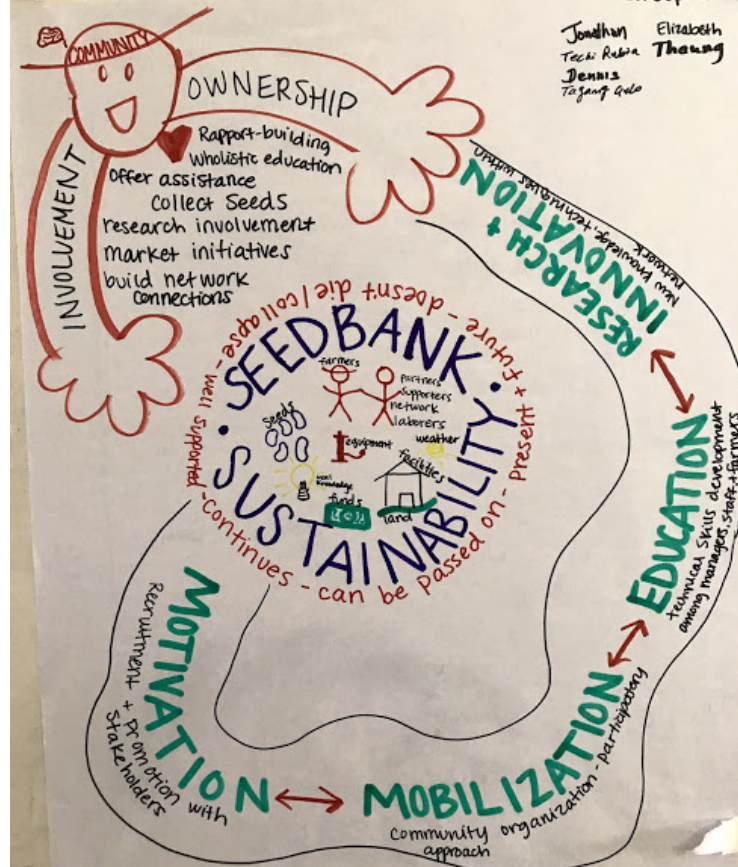 Jonathan Elizabeth
Techi Rubia Thaung
Dennis
COMMUNITY
OWNERSHIP
INVOLVEMENT
Rapport-building
Wholistic education
Offer assistance
collect seeds
research involvement
market initiatives
build network
connections
RESEARCH +
INNOVATION
New knowledge, techniques within
network
EDUCATION
technical skills development
among managers, staff + farmers
MOBILIZATION
community organization - participatory
approach
MOTIVATION
Recruitment + promotion with
Stakeholders
SEEDBANK
SUSTAINABILITY
present + future - doesn't die/collapse - well supported - continues - can be passed on -
farmers
partners
supporters
network
laborers
seeds
equipment
weather
facilities
knowledge
funds
land